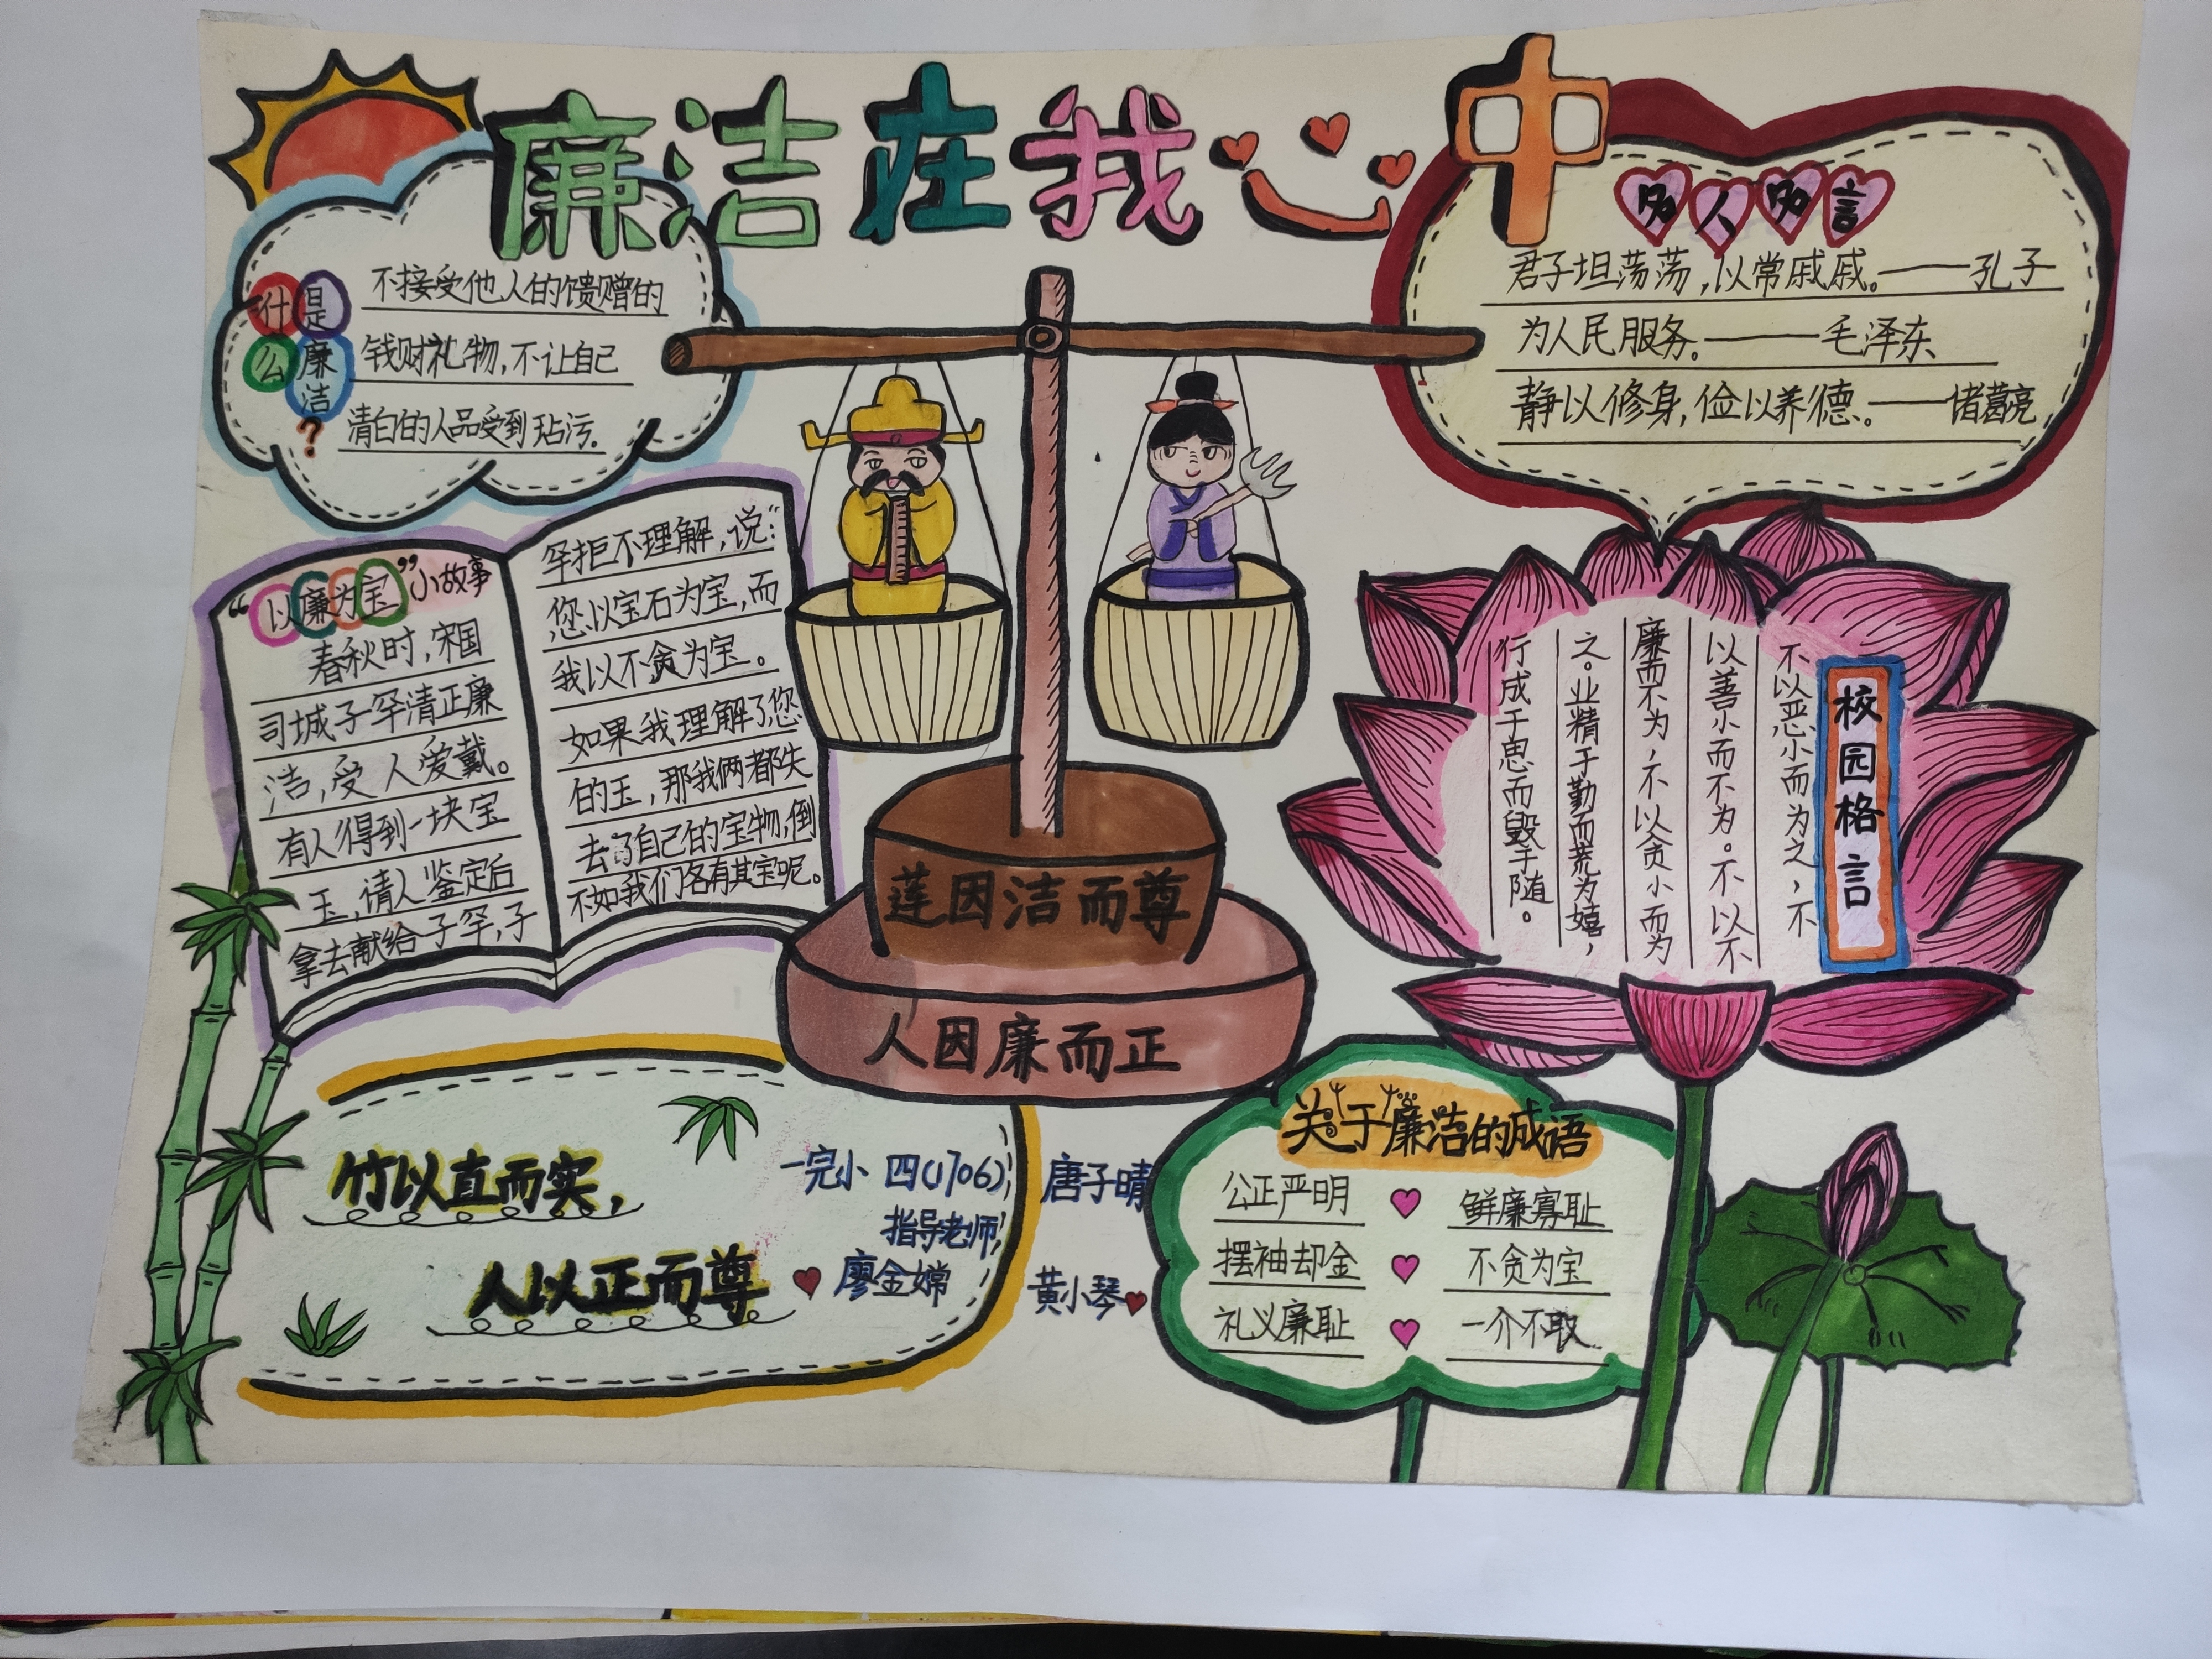 廉洁在我心
什是
么廉洁
?
不接受他人的馈赠的
钱财礼物,不让自己
清白的人品受到玷污。
名人名言
君子坦荡荡,以常戚戚。——孔子
为人民服务。——毛泽东
静以修身,俭以养德。——诸葛亮
“以廉为宝”小故事
春秋时,宋国
司城子罕清正廉
洁,受人爱戴。
有人得到一块宝
玉,请人鉴定后
拿去献给子罕,子
罕拒不理解,说:“
您以宝石为宝,而
我以不贪为宝。
如果我理解了您
的玉,那我俩都失
去了自己的宝物,倒
不如我们各有其宝呢。
莲因洁而尊
人因廉而正
校园格言
不以恶小而为之,不
以善小而不为。不以不
廉而不为,不以贪小而为
之。业精于勤而荒为嬉,
行成于思而毁于随。
竹以直而实,
人以正而尊
一完小 四(1706) 唐子晴
指导老师
廖金嫦 黄小琴
关于廉洁的成语
公正严明 鲜廉寡耻
摆袖却金 不贪为宝
礼义廉耻 一介不取